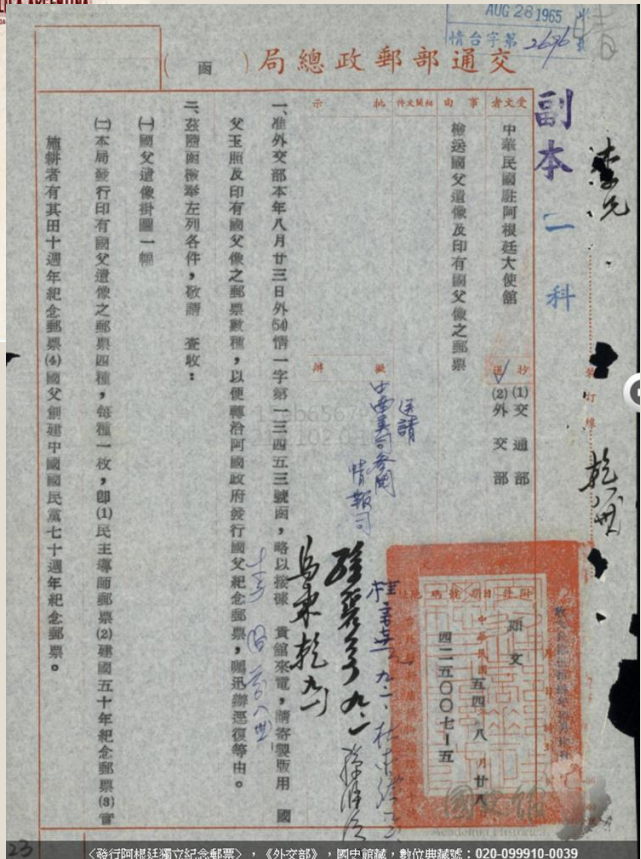 AUG 28 1965
情台字第2696號
交通部郵政總局(函)
副本
二科
受文者
中華民國駐阿根廷大使館
事由
檢送國父遺像及印有國父像之郵票
相關文件
批示
擬辦
抄送
(1)交通部
(2)外交部
送請
中南美司參閱
情報司
裝訂線
頌文
中華民國五四年八月廿八
四二五〇〇七—五
一、准外交部本年八月廿三日外54情一字第一三四五三號函,略以接據 貴館來電,請寄製版用 國
父玉照及印有國父像之郵票數種,以便轉洽阿國政府發行國父紀念郵票,囑迅辦逕復等由。
二、茲隨函檢奉左列各件,敬請 查收:
(一)國父遺像掛圖一幅
(二)本局發行印有國父遺像之郵票四種,每種一枚,即(1)民主導師郵票(2)建國五十年紀念郵票(3)實
施耕者有其田十週年紀念郵票(4)國父創建中國國民黨七十週年紀念郵票。
國史館
Academia Historica
23
〈發行阿根廷獨立紀念郵票〉,《外交部》,國史館藏,數位典藏號:020-099910-0039